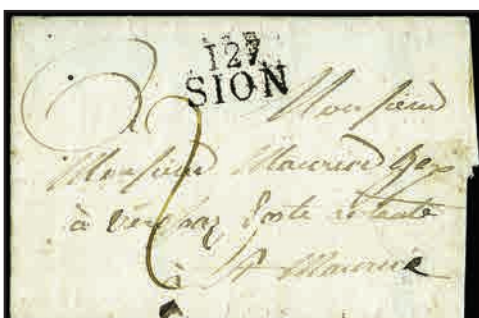 127
SION
Monsieur
Monsieur Maurice Gex
à Verossaz Poste restante
à St Maurice